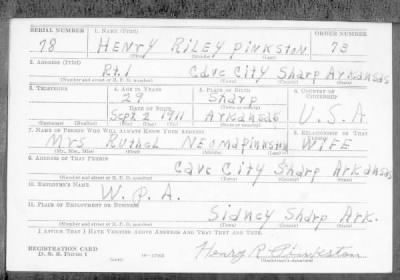 SERIAL NUMBER 1. NAME (Print) ORDER NUMBER
78 HENRY RILEY PINKSTON 73
(First) (Middle) (Last)
2. ADDRESS (Print)
Rt. 1 Cave City Sharp Arkansas
(Number and street or R. F. D. number) (Town) (County) (State)
3. TELEPHONE 4. AGE IN YEARS 5. PLACE OF BIRTH 6. COUNTRY OF CITIZENSHIP
29 Sharp
DATE OF BIRTH (Town) (County)
Sept 2 1911 Arkansas U.S.A
(Exchange) (Number) (Mo.) (Day) (Yr.) (State or country)
7. NAME OF PERSON WHO WILL ALWAYS KNOW YOUR ADDRESS 8. RELATIONSHIP OF THAT PERSON
Mrs NEOMA PINKSTON WIFE
(Mr., Mrs., Miss) (First) (Middle) (Last)
9. ADDRESS OF THAT PERSON
Cave City Sharp Arkansas
(Number and street or R. F. D. number) (Town) (County) (State)
10. EMPLOYER'S NAME
W.P.A.
11. PLACE OF EMPLOYMENT OR BUSINESS
Sidney Sharp Ark.
(Number and street or R. F. D. number) (Town) (County) (State)
I AFFIRM THAT I HAVE VERIFIED ABOVE ANSWERS AND THAT THEY ARE TRUE.
REGISTRATION CARD
D. S. S. Form 1 Henry R Pinkston
(over) (Registrant's signature)